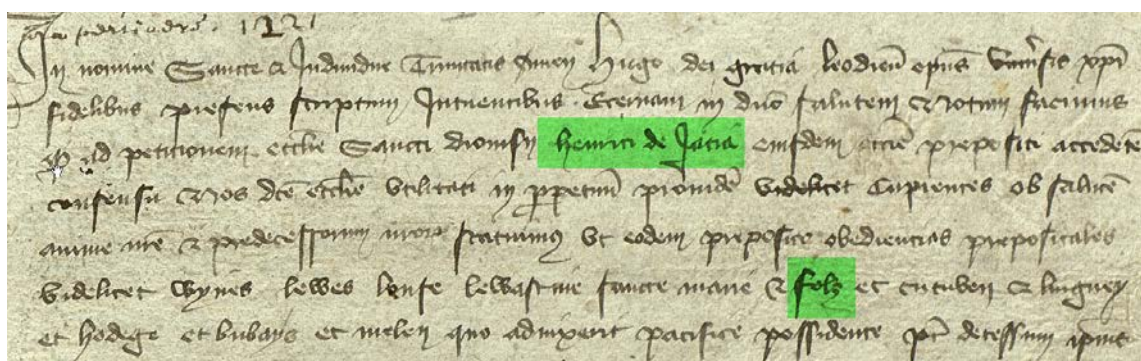 1221
In nomine Sancte & Individue Trinitatis Amen Hugo dei gratia leodien epus xpi
fidelibus presens scriptum Intuentibus Eternam in dno salutem & Notum facimus
ad petitionem ecclie Sancti dionisy henrici de Jacia eiusdem eccie prepositi accedete
consensu & nos dce ecclie utilitati in perpetuu providē videlicet Cupientes ob salutē
anime nre & predecessorum nrorum statuimus ut eodem preposito obediencias prepositales
videlicet wynes lewes lewastine sancte marie & folz et cutuben & lingney
et hodege et bubays et melen quo advixerit pacifice possidente decessum ipius